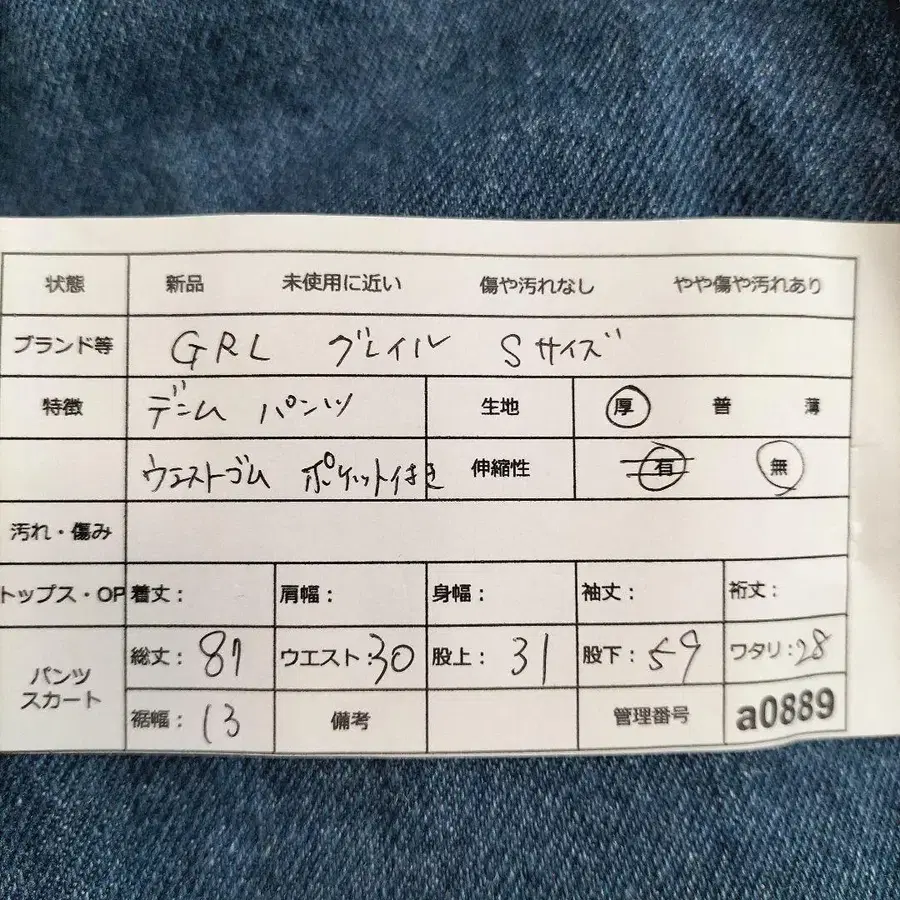 状態 新品 未使用に近い 傷や汚れなし やや傷や汚れあり
ブランド等 GRL グレイル Sサイズ
特徴 デニム パンツ 生地 厚 普 薄
ウエストゴム ポケット付き 伸縮性 有 無
汚れ・傷み
トップス・OP 着丈: 肩幅: 身幅: 袖丈: 裄丈:
パンツ スカート 総丈: 87 ウエスト: 30 股上: 31 股下: 59 ワタリ: 28
裾幅: 13 備考 管理番号 a0889